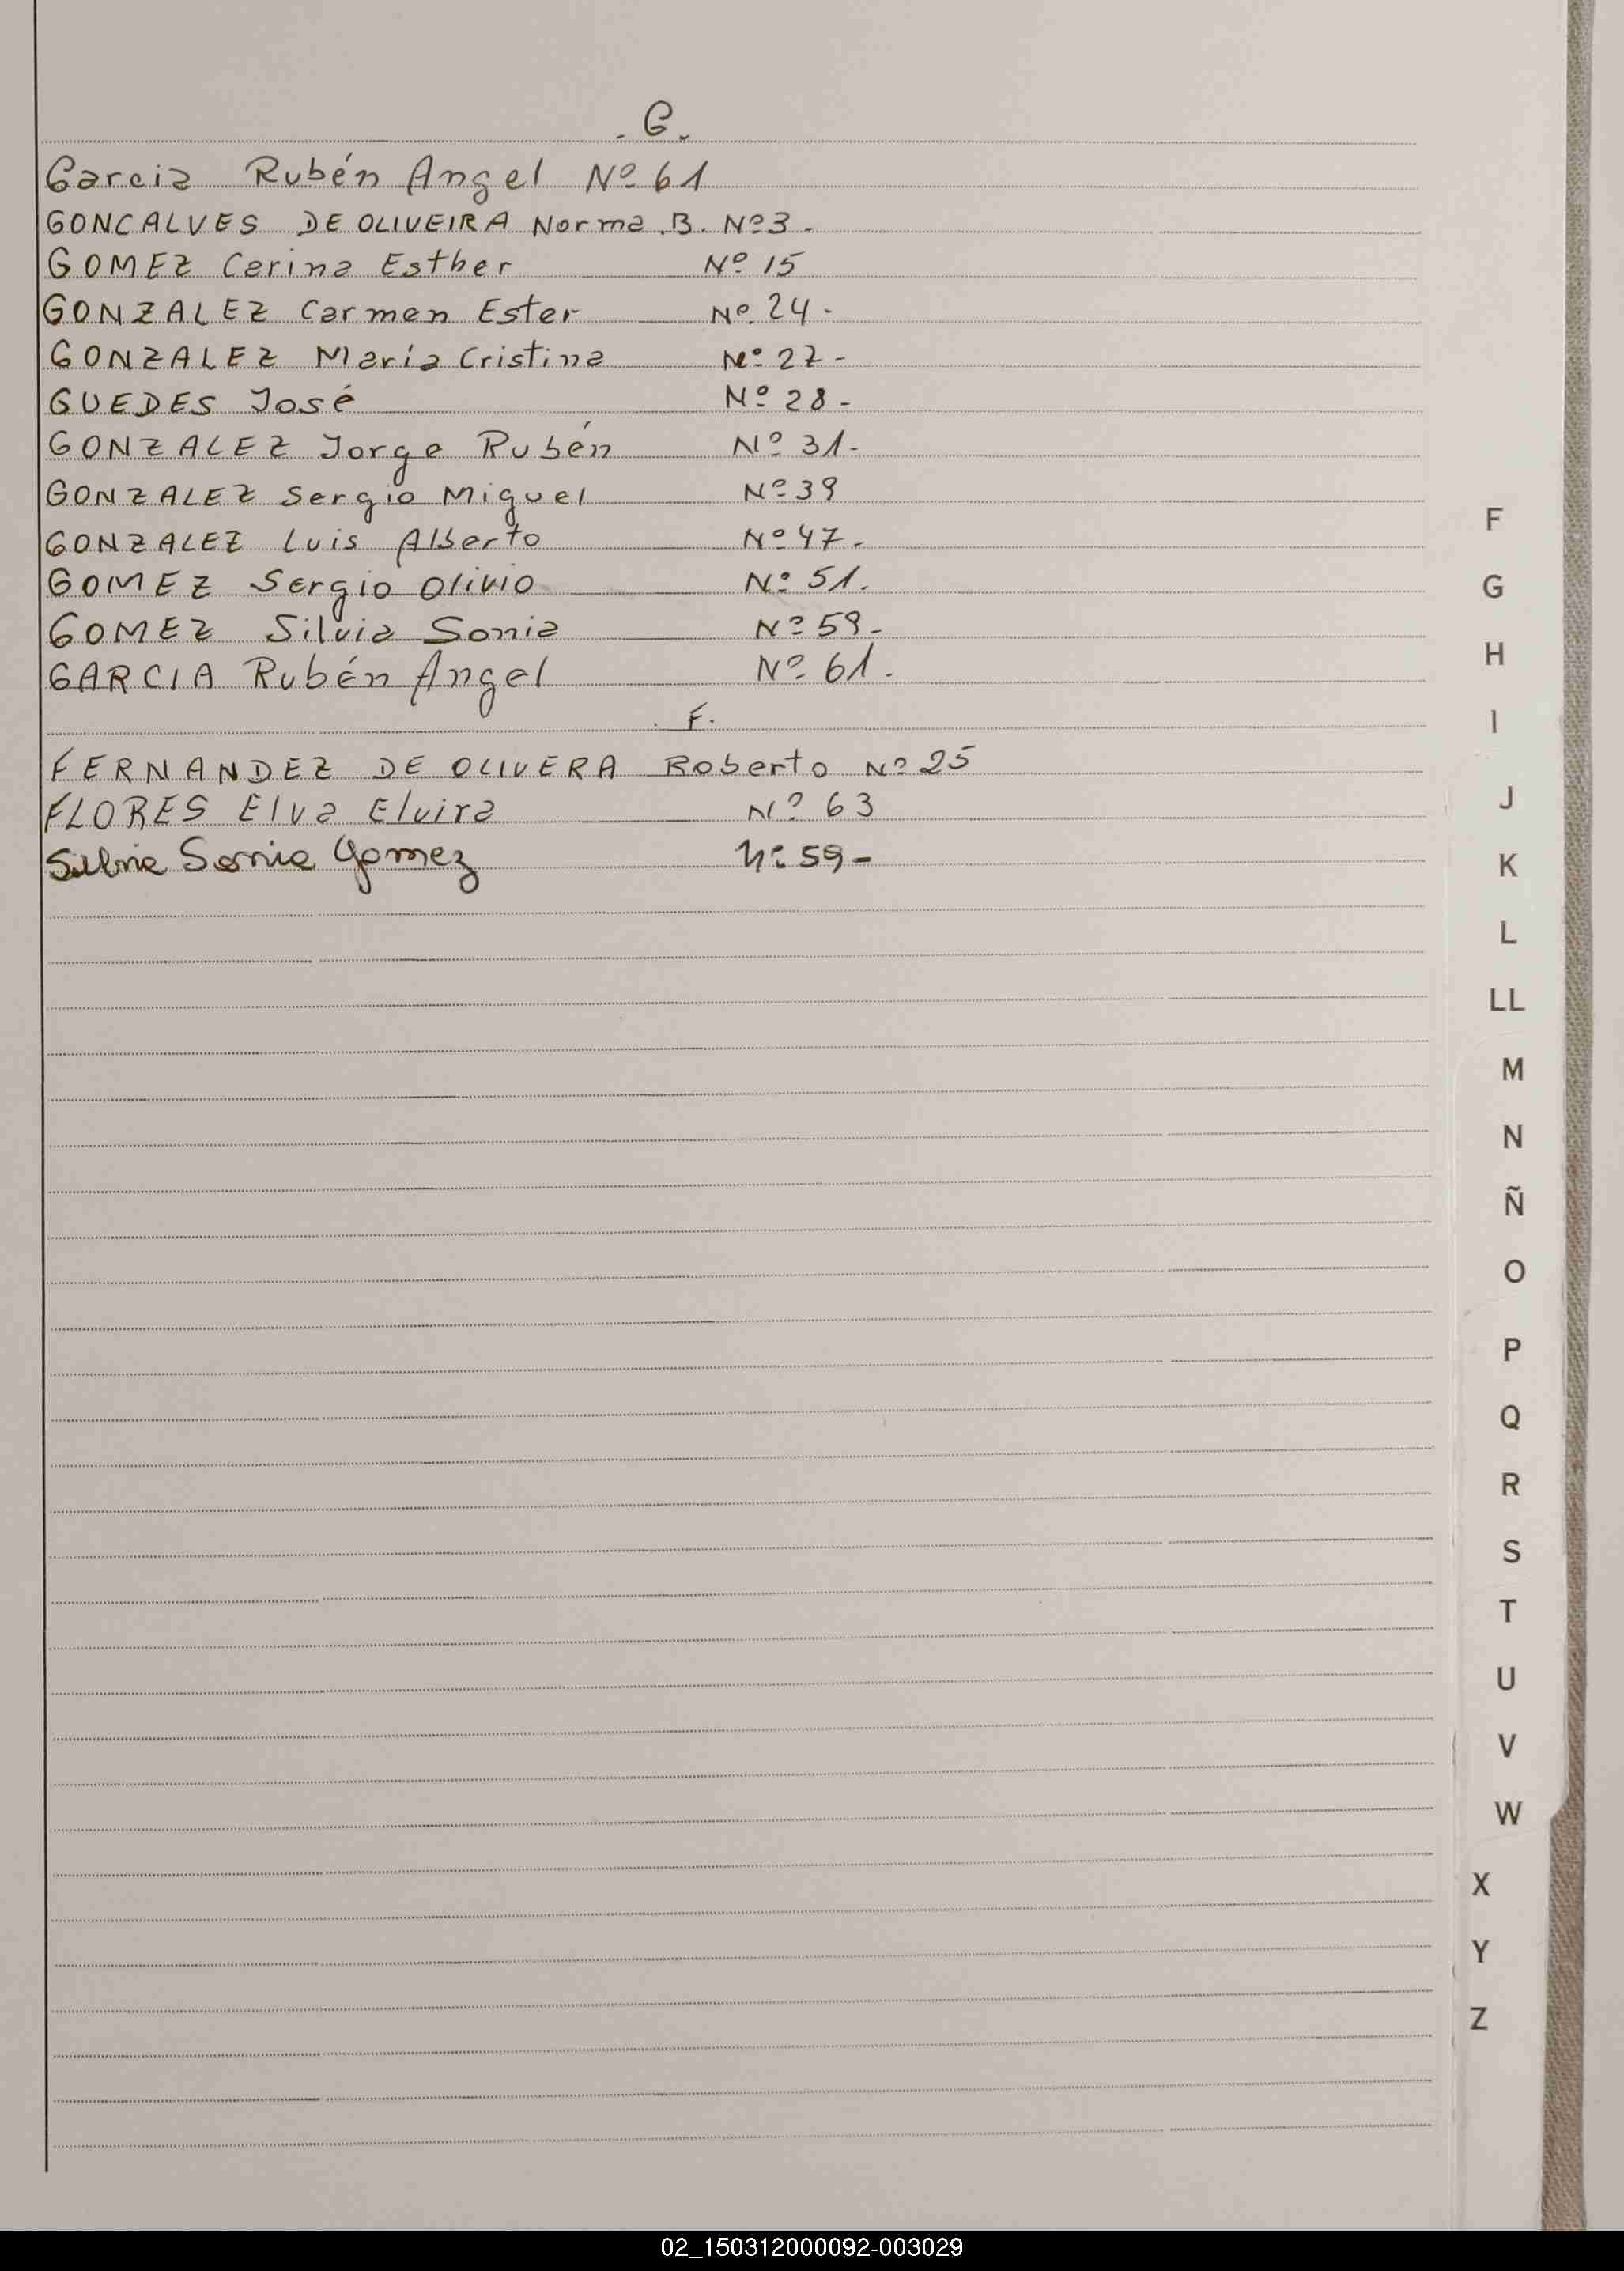 . G .
Garcia Rubén Angel Nº 61
GONCALVES DE OLIVEIRA Norma .B. Nº3 .
GOMEZ Cerina Esther Nº 15
GONZALEZ Carmen Ester Nº 24 -
GONZALEZ María Cristina Nº 27 -
GUEDES José Nº 28 -
GONZALEZ Jorge Rubén Nº 31 -
GONZALEZ Sergio Miguel Nº 39
GONZALEZ Luis Alberto Nº 47 -
GOMEZ Sergio Olivio Nº 51.
GOMEZ Silvia Sonia Nº 59 -
GARCIA Rubén Angel Nº 61 .
. F.
FERNANDEZ DE OLIVERA Roberto Nº 25
FLORES Elva Elvira Nº 63
Silvia Sonia Gomez Nº 59 -
F
G
H
I
J
K
L
LL
M
N
Ñ
O
P
Q
R
S
T
U
V
W
X
Y
Z
02_150312000092-003029